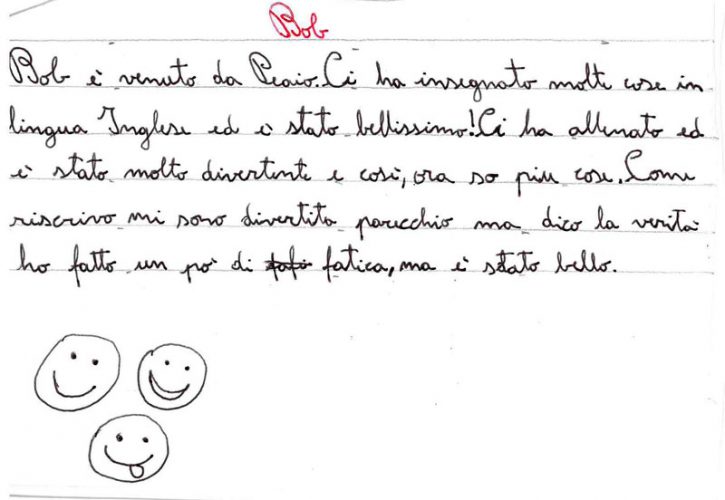 Bob
Bob è venuto da Peaio. Ci ha insegnato molte cose in
lingua Inglese ed è stato bellissimo! Ci ha allenato ed
è stato molto divertente e così, ora so più cose. Come
riscrivo mi sono divertita parecchio ma dico la verità
ho fatto un pò di fatica, ma è stato bello.